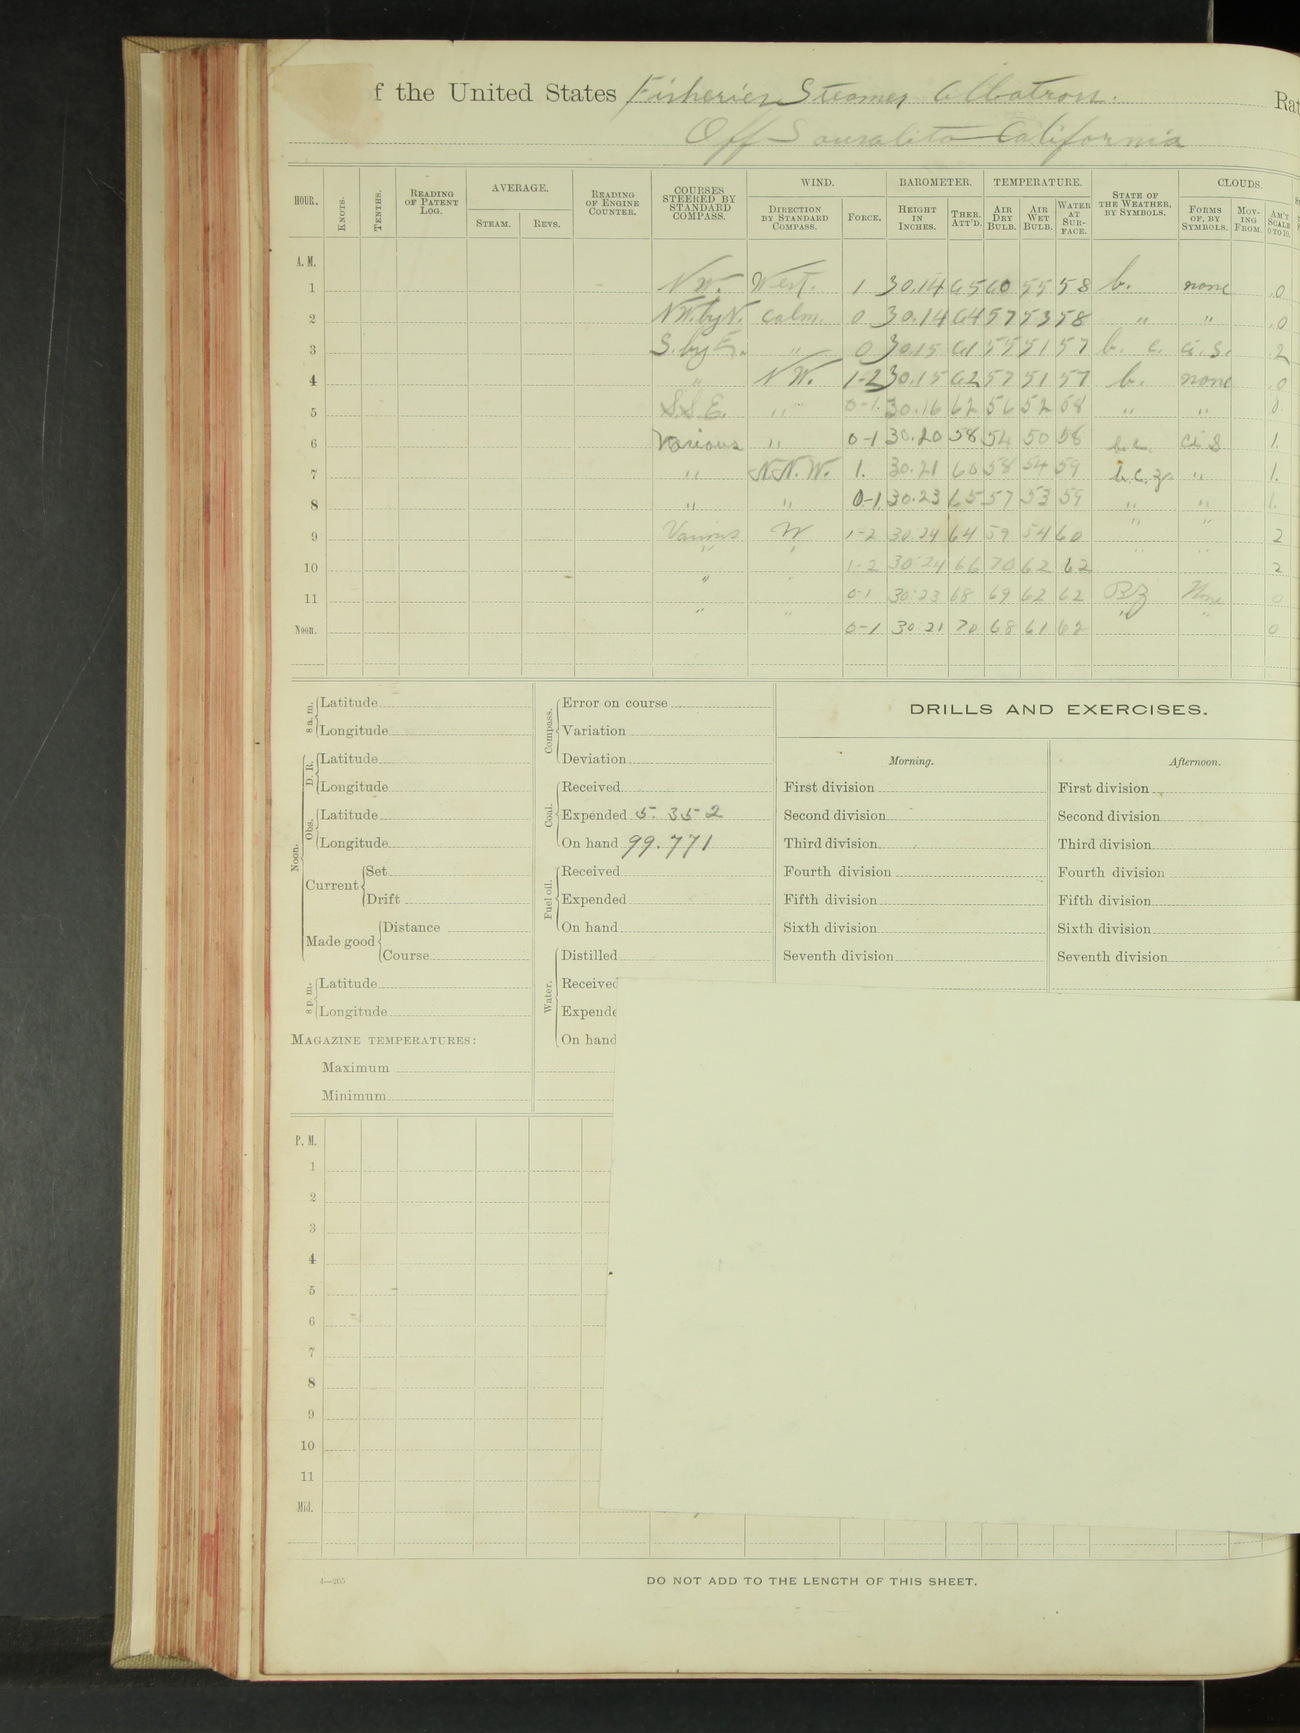 f the United States Fisheries Steamer Albatross. Rat
Off Sausalito California
HOUR. KNOTS. TENTHS. READING OF PATENT LOG. AVERAGE. STEAM. REVS. READING OF ENGINE COUNTER. COURSES STEERED BY STANDARD COMPASS. WIND. DIRECTION BY STANDARD COMPASS. FORCE. BAROMETER. HEIGHT IN INCHES. THER. ATT'D. TEMPERATURE. AIR DRY BULB. AIR WET BULB. WATER AT SUR-FACE. STATE OF THE WEATHER, BY SYMBOLS. CLOUDS. FORMS OF, BY SYMBOLS. MOV-ING FROM. AM'T SCALE 0 TO 10.
A. M.
1 N W. West. 1 30.14 65 60 55 58 b. none .0
2 N W. by N. calm. 0 30.14 64 57 53 58 " " .0
3 S. by E. " 0 30.15 61 55 51 57 b. c. ci. S. .2
4 " N W. 1-2 30.15 62 57 51 57 b. none .0
5 S.S.E. " 0-1. 30.16 62 56 52 58 " " 0.
6 Various " 0-1 30.20 58 54 50 58 b.c. ci S 1.
7 " N.N.W. 1. 30.21 60 58 54 59 b.c.z. " 1.
8 " " 0-1 30.23 65 57 53 59 " " 1.
9 Various W 1-2 30.24 64 59 54 60 " " 2
10 " " 1-2 30.24 66 70 62 62 " " 2
11 " " 0-1 30.23 68 69 62 62 BZ None 0
Noon. " " 0-1 30.21 70 68 61 62 " " 0
8 a. m. Latitude
Longitude
Noon. D. R. Latitude
Longitude
Obs. Latitude
Longitude
Current Set
Drift
Made good Distance
Course
8 p. m. Latitude
Longitude
MAGAZINE TEMPERATURES:
Maximum
Minimum
Compass. Error on course
Variation
Deviation
Coal. Received
Expended 5.352
On hand 99.771
Fuel oil. Received
Expended
On hand
Water. Distilled
Received
Expende
On hand
DRILLS AND EXERCISES.
Morning.
First division
Second division
Third division
Fourth division
Fifth division
Sixth division
Seventh division
Afternoon.
First division
Second division
Third division
Fourth division
Fifth division
Sixth division
Seventh division
P. M.
1
2
3
4
5
6
7
8
9
10
11
Mid.
4—265
DO NOT ADD TO THE LENGTH OF THIS SHEET.